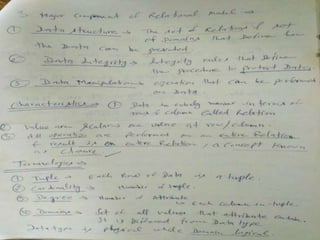 3 Major Component of Relational Model →
① Data structure → The set of Relations & set
of Domains that Define how
the Data can be
② Data Integrity → Integrity rules that Define
the procedure to protect Data.
③ Data Manipulation → operation that can be performed
on Data.
Characteristics → ① Data in manner in terms of
row & column called Relation
② Value are Scalar one value at row/column.
③ All operation are performed on an entire Relation
& result is an entire Relation, a concept known
as Closure
Terminologies →
① Tuple → Each Row of Data is a tuple.
② Cardinality → Number of tuple.
③ Degree → Number of Attribute
→ Each column in tuple.
④ Domain → Set of all values that attribute
It is Different from Data type
Data type is physical while Domain logical.